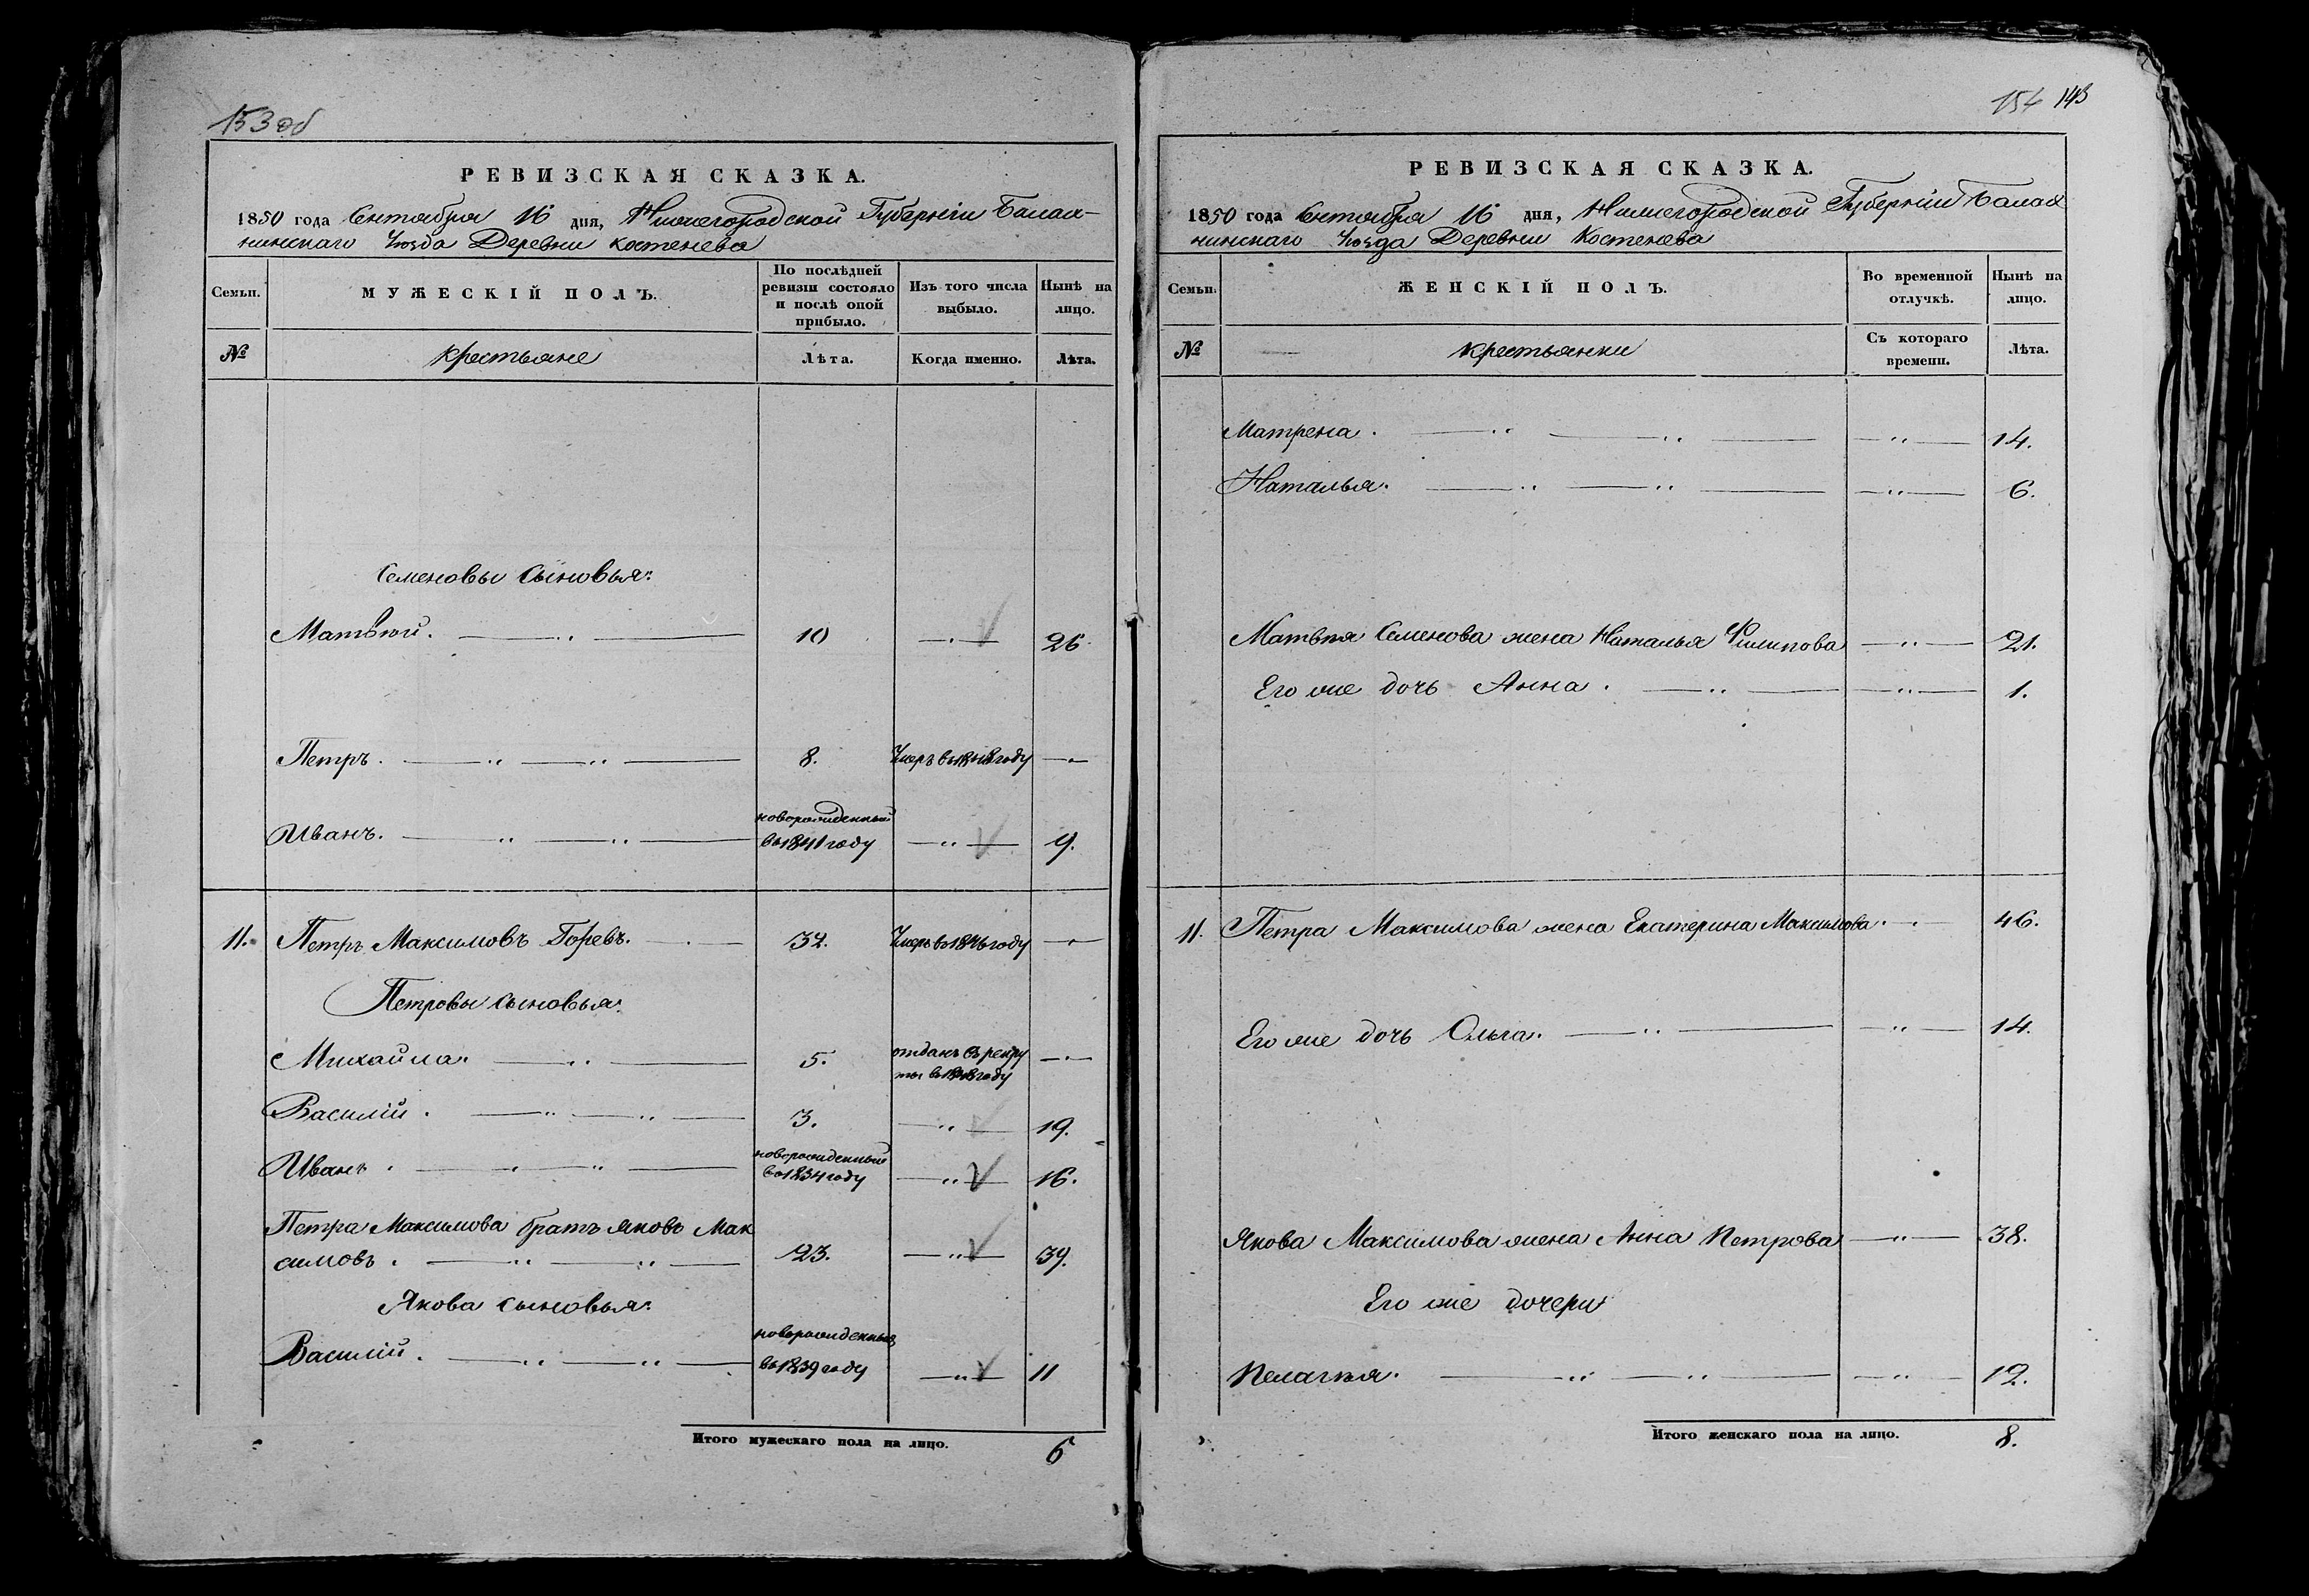 153 об
РЕВИЗСКАЯ СКАЗКА.
1850 года Сентября 16 дня, Нижегородской Губерніи Балах-
нинскаго Уѣзда Деревни Костенева
Семьи.
МУЖЕСКІЙ ПОЛЪ.
По послѣдней ревизіи состояло и послѣ оной прибыло.
Изъ того числа выбыло.
Нынѣ на лицо.
№
крестьяне
Лѣта.
Когда именно.
Лѣта.
Семеновы сыновья:
Матвѣй. 10 26.
Петръ. 8. Умеръ въ году
Иванъ. новорожденный въ 1841 году 9.
11. Петръ Максимовъ Горевъ. 32. Умеръ въ 1846 году
Петровы сыновья:
Михайла. 5. отданъ въ рекру
ты въ 1848 году
Василій. 3. 19.
Иванъ. новорожденный въ 1834 году 16.
Петра Максимова братъ Яковъ Мак
симовъ. 23. 39.
Якова сыновья:
Василій. новорожденный въ 1839 году 11
Итого мужескаго пола на лицо. 6
154 143
РЕВИЗСКАЯ СКАЗКА.
1850 года Сентября 16 дня, Нижегородской Губерніи Балах
нинскаго Уѣзда Деревни Костенева
Семьи.
ЖЕНСКІЙ ПОЛЪ.
Во временной отлучкѣ.
Нынѣ на лицо.
№
крестьянки
Съ котораго времени.
Лѣта.
Матрена. 14.
Наталья. 6.
Матвѣя Семенова жена Наталья Филипова 21.
Его же дочь Анна. 1.
11. Петра Максимова жена Екатерина Максимова. 46.
Его же дочь Ольга. 14.
Якова Максимова жена Анна Петрова 38.
Его же дочери
Пелагѣя. 12.
Итого женскаго пола на лицо. 8.